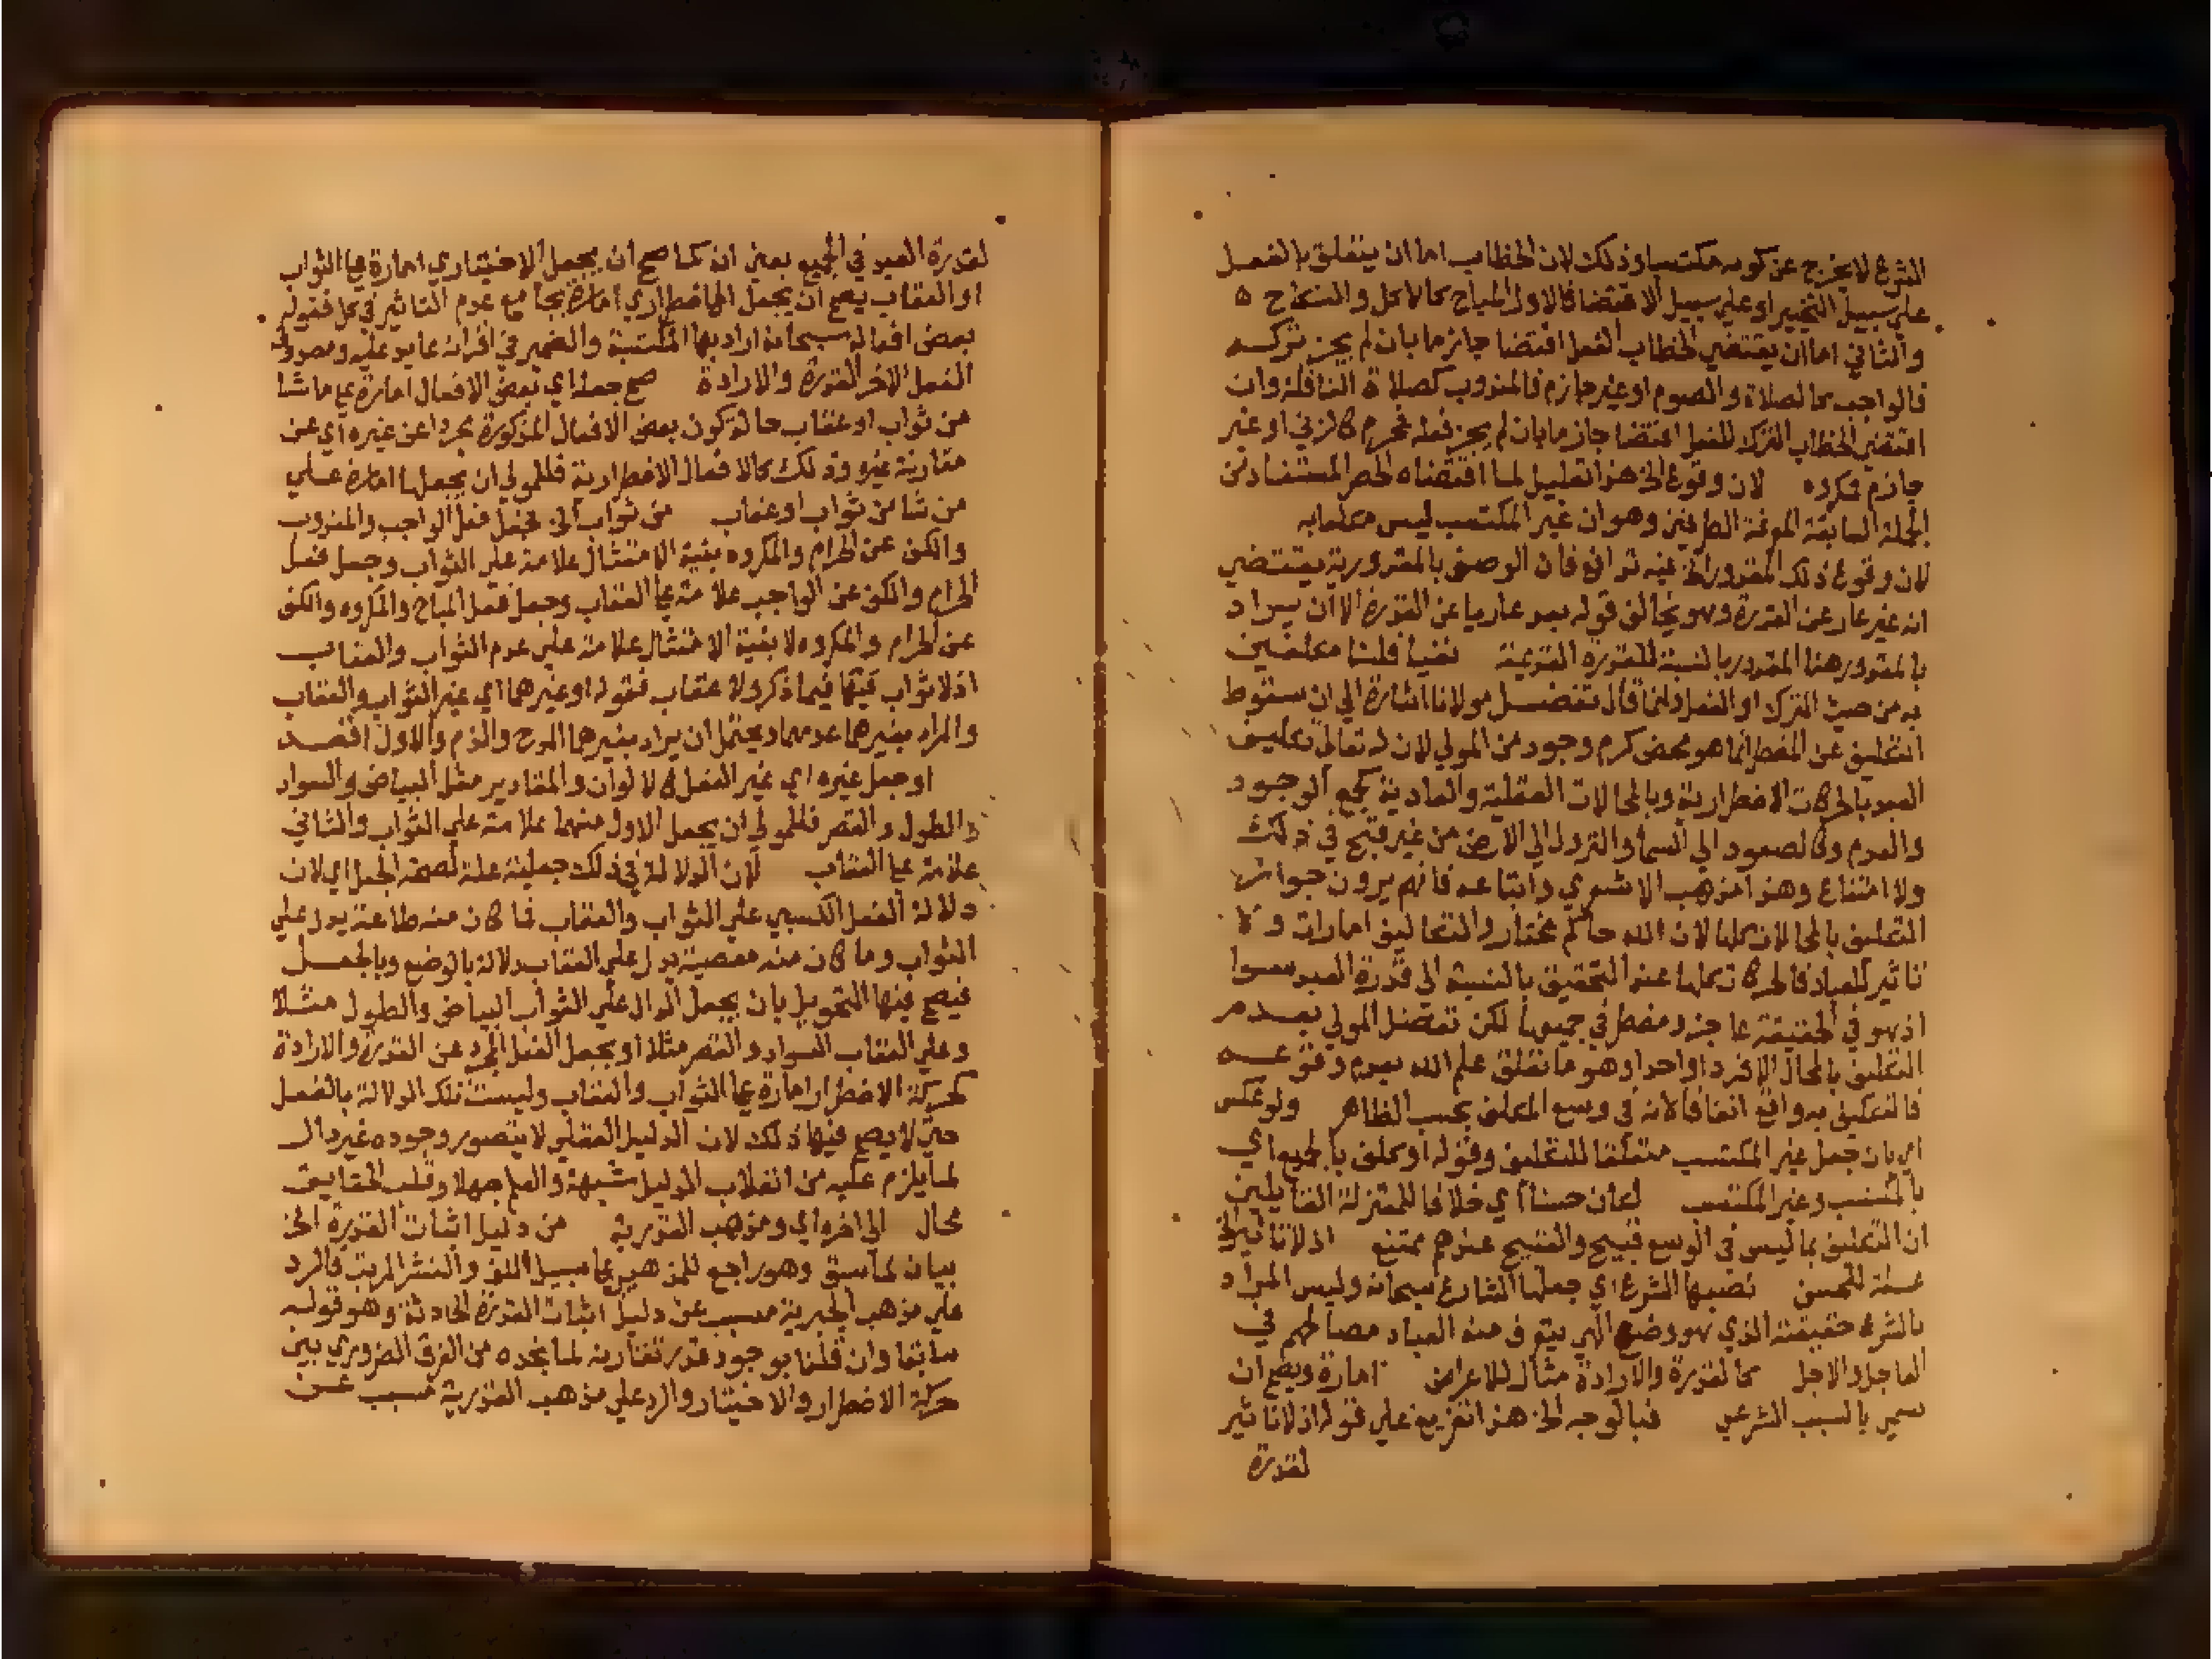 الشرع لا يخرج عن كونه مكتسبا وذلك لان الخطاب اما ان يتعلق بالفعل
علي سبيل التخيير او علي سبيل الاقتضا فالاول المباح كالاكل والنكاح ه
والثاني اما ان يقتضي الخطاب الفعل اقتضا جازما بان لم يجز تركه
فالواجب كالصلاة والصوم او غير جازم فالمندوب كصلاة النافلة وان
اقتضي الخطاب الترك للفعل اقتضا جازما بان لم يجز فعله فمحرم كالزني او غير
جازم فمكروه لان وقوع الخ هذا تعليل لما اقتضاه الحصر المستفاد من
الجملة السابقة المعرفة الطرفين وهو ان غير المكتسب ليس مكلفا به
لان وقوع ذلك المقدور الخ فيه تدافع فان الوصف بالمقدورية يقتضي
انه غير عار عن القدرة وهو يخالف قوله بعد عاريا عن القدرة الا ان يراد
بالمقدور هنا المقدور بالنسبة للقدرة القديمة نفيا فلنا مكلفين
به من حيث الترك او الفعل وانما قال تفضل مولانا اشارة الي ان سقوط
التكليف عن المضطر انما هو محض كرم وجود من المولي لان له تعالي تكليف
العبد بالحركات الاضطرارية وبالمحالات العقلية والعادية كجمع الوجود
والعدم وكالصعود الي السما والنزول الي الارض من غير قبح في ذلك
ولا امتناع وهذا مذهب الاشعري واتباعه فانهم يرون جواز
التكليف بالمحالات كلها لان الله حاكم مختار والتكاليف امارات ولا
تاثير للعباد فالحركات كلها عند التحقيق بالنسبة الي قدرة العبد سوا
اذ هو في الحقيقة عاجز ومضطر في جميعها لكن تفضل المولي بعدم
التكليف بالمحال الا فردا واحدا وهو ما تعلق علم الله بعدم وقوعه
فالتكليف به واقع اتفاقا لانه في وسع المكلف بحسب الظاهر ولو عكس
اي بان جعل غير المكتسب متعلقا للتكليف وقوله او كلف بالجميع اي
بالمكتسب وغير المكتسب لكان حسنا اي خلافا للمعتزلة القايلين
ان التكليف بما ليس في الوسع قبيح والقبيح عندهم ممتنع اذ لا تاثير الخ
علة للحسن نصبها الشرع اي جعلها الشارع سبحانه وليس المراد
بالشرع حقيقته الذي هو وضع الهي يتعرف منه العباد مصالحهم في
العاجل والاجل كالقدرة والارادة مثال للاعراض امارة ويصح ان
سمي بالسبب الشرعي فبالوجه الخ هذا تفريع علي قوله اذ لا تاثير
لقدرة
لقدرة العبد في الجميع بمعني انه كما صح ان يجعل الاختياري امارة علي الثواب
او العقاب يصح ان يجعل الاضطراري امارة بجامع عدم التاثير في كل فقوله
بعض افعاله سبحانه اراد بها المكتسبة والضمير في اقرانه عايد عليه
الفعل الاخر القدرة والارادة صح جعله اي بعض الافعال امارة علي ما شا
من ثواب او عقاب حالة كون بعض الافعال المذكورة مجردا عن غيره اي عن
مقارنة غيره وذلك كالافعال الاضطرارية فللمولي ان يجعلها امارة علي
من شا من ثواب او عقاب من ثواب الخ فجعل فعل الواجب والمندوب
والكف عن الحرام والمكروه بنية الامتثال علامة علي الثواب وجعل فعل
الحرام والكف عن الواجب علامة علي العقاب وجعل فعل المباح والمكروه والكف
عن الحرام والمكروه لا بنية الامتثال علامة علي عدم الثواب والعقاب
اذ لا ثواب فيها فيما ذكر ولا عقاب فقوله او غيرهما اي غير الثواب والعقاب
والمراد بغيرهما عدمهما ويحتمل ان يراد بغيرهما المدح والذم والاول اقعد
او جعل غيره اي غير الفعل كالالوان والمقادير مثل البياض والسواد
والطول والقصر فللمولي ان يجعل الاول منهما علامة علي الثواب والثاني
علامة علي العقاب لان الدلالة في ذلك جعلية علة لصحة الجعل اي لان
دلالة الفعل الكسبي علي الثواب والعقاب فما كان منه طاعة يدل علي
الثواب وما كان منه معصية يدل علي العقاب دلالة بالوضع وبالجعل
فيصح فيها التحويل بان يجعل الدال علي الثواب البياض والطول مثلا
وعلي العقاب السواد والقصر مثلا او يجعل الفعل المجرد عن القدرة والارادة
كحركة الاضطرار امارة علي الثواب والعقاب وليست تلك الدلالة بالفعل
حتي لا يصح فيها ذلك لان الدليل العقلي لا يتصور وجوده غير دال
لما يلزم عليه من انقلاب الدليل شبهة والعلم جهلا وقلب الحقايق
محال الي اخره اي ومذهب القدرية من دليل اثبات القدرة الخ
بيان لما سبق وهو راجع للمذهبين علي سبيل اللف والنشر المرتب فالرد
علي مذهب الجبرية مسبب عن دليل اثبات القدرة الحادثة وهو قوله
سابقا وان قلنا بوجود قدرة تقارنه لما نجده من الفرق الضروري بين
حركة الاضطرار والاختيار والرد علي مذهب القدرية مسبب عن